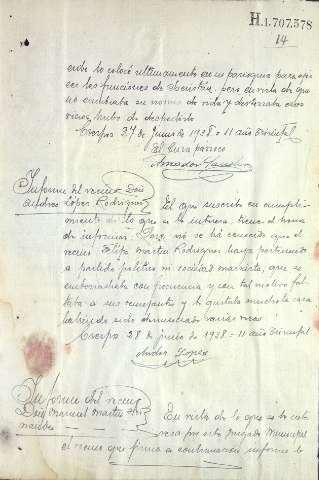 H.1.707.578
14
este lo colocó ultimamente en su parroquia para ejer
cer las funciones de Sacristán, pero en vista de que
no cambiaba su norma de vida y desterraba esos
vicios, hubo de desecharlo
Crespo 27 de junio de 1938 = II año triunfal
El Cura párroco
Amador
Informe del vecino Don
Andres López Rodriguez
El que suscribe en cumpli
miento de lo que se le interesa, tiene el honor
de informar: Que no se ha conocido que el
vecino Felipe Martin Rodriguez haya pertenecido
a partido politico ni sociedad marxista, que se
emborrachaba con frecuencia y con tal motivo fal
taba a sus semejantes y le gustaba mucho la caza
habiendo sido denunciado varias veces
Crespo 28 de junio de 1938 = II año triunfal
Andres Lopez
Informe del vecino
Don Manuel Martin
En vista de lo que se le inte
resa por este Juzgado Municipal
el vecino que firma a continuación informa lo